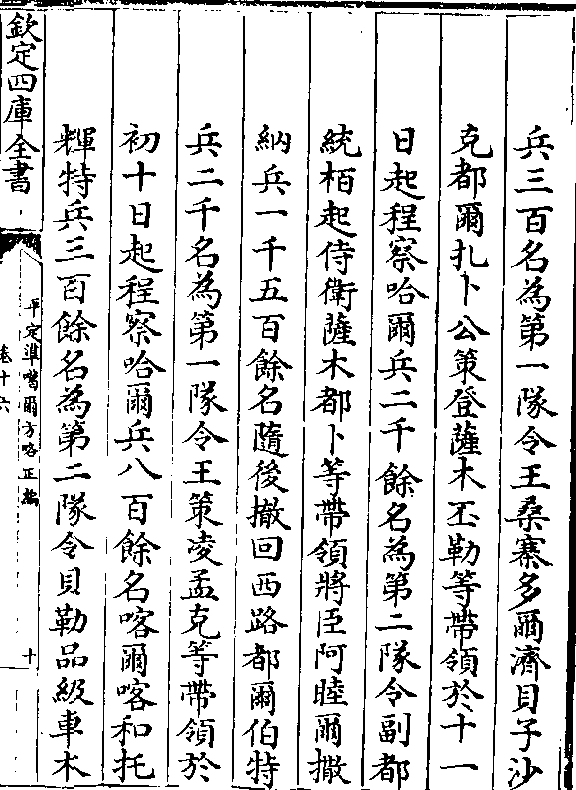 兵三百名為第一隊令王桑寨多爾濟貝子沙
克都爾扎卜公策登薩木丕勒等帶領於十一
日起程察哈爾兵二千餘名為第二隊令副都
統栢起侍衛薩木都卜等帶領將臣阿睦爾撒
納兵一千五百餘名隨後撤回西路都爾伯特
兵二千名為第一隊令王策凌孟克等帶領於
初十日起程察哈爾兵八百餘名喀爾喀和托
輝特兵三百餘名為第二隊令貝勒品級車木
欽定四庫全書
平定準噶爾方略正編
卷十六
十